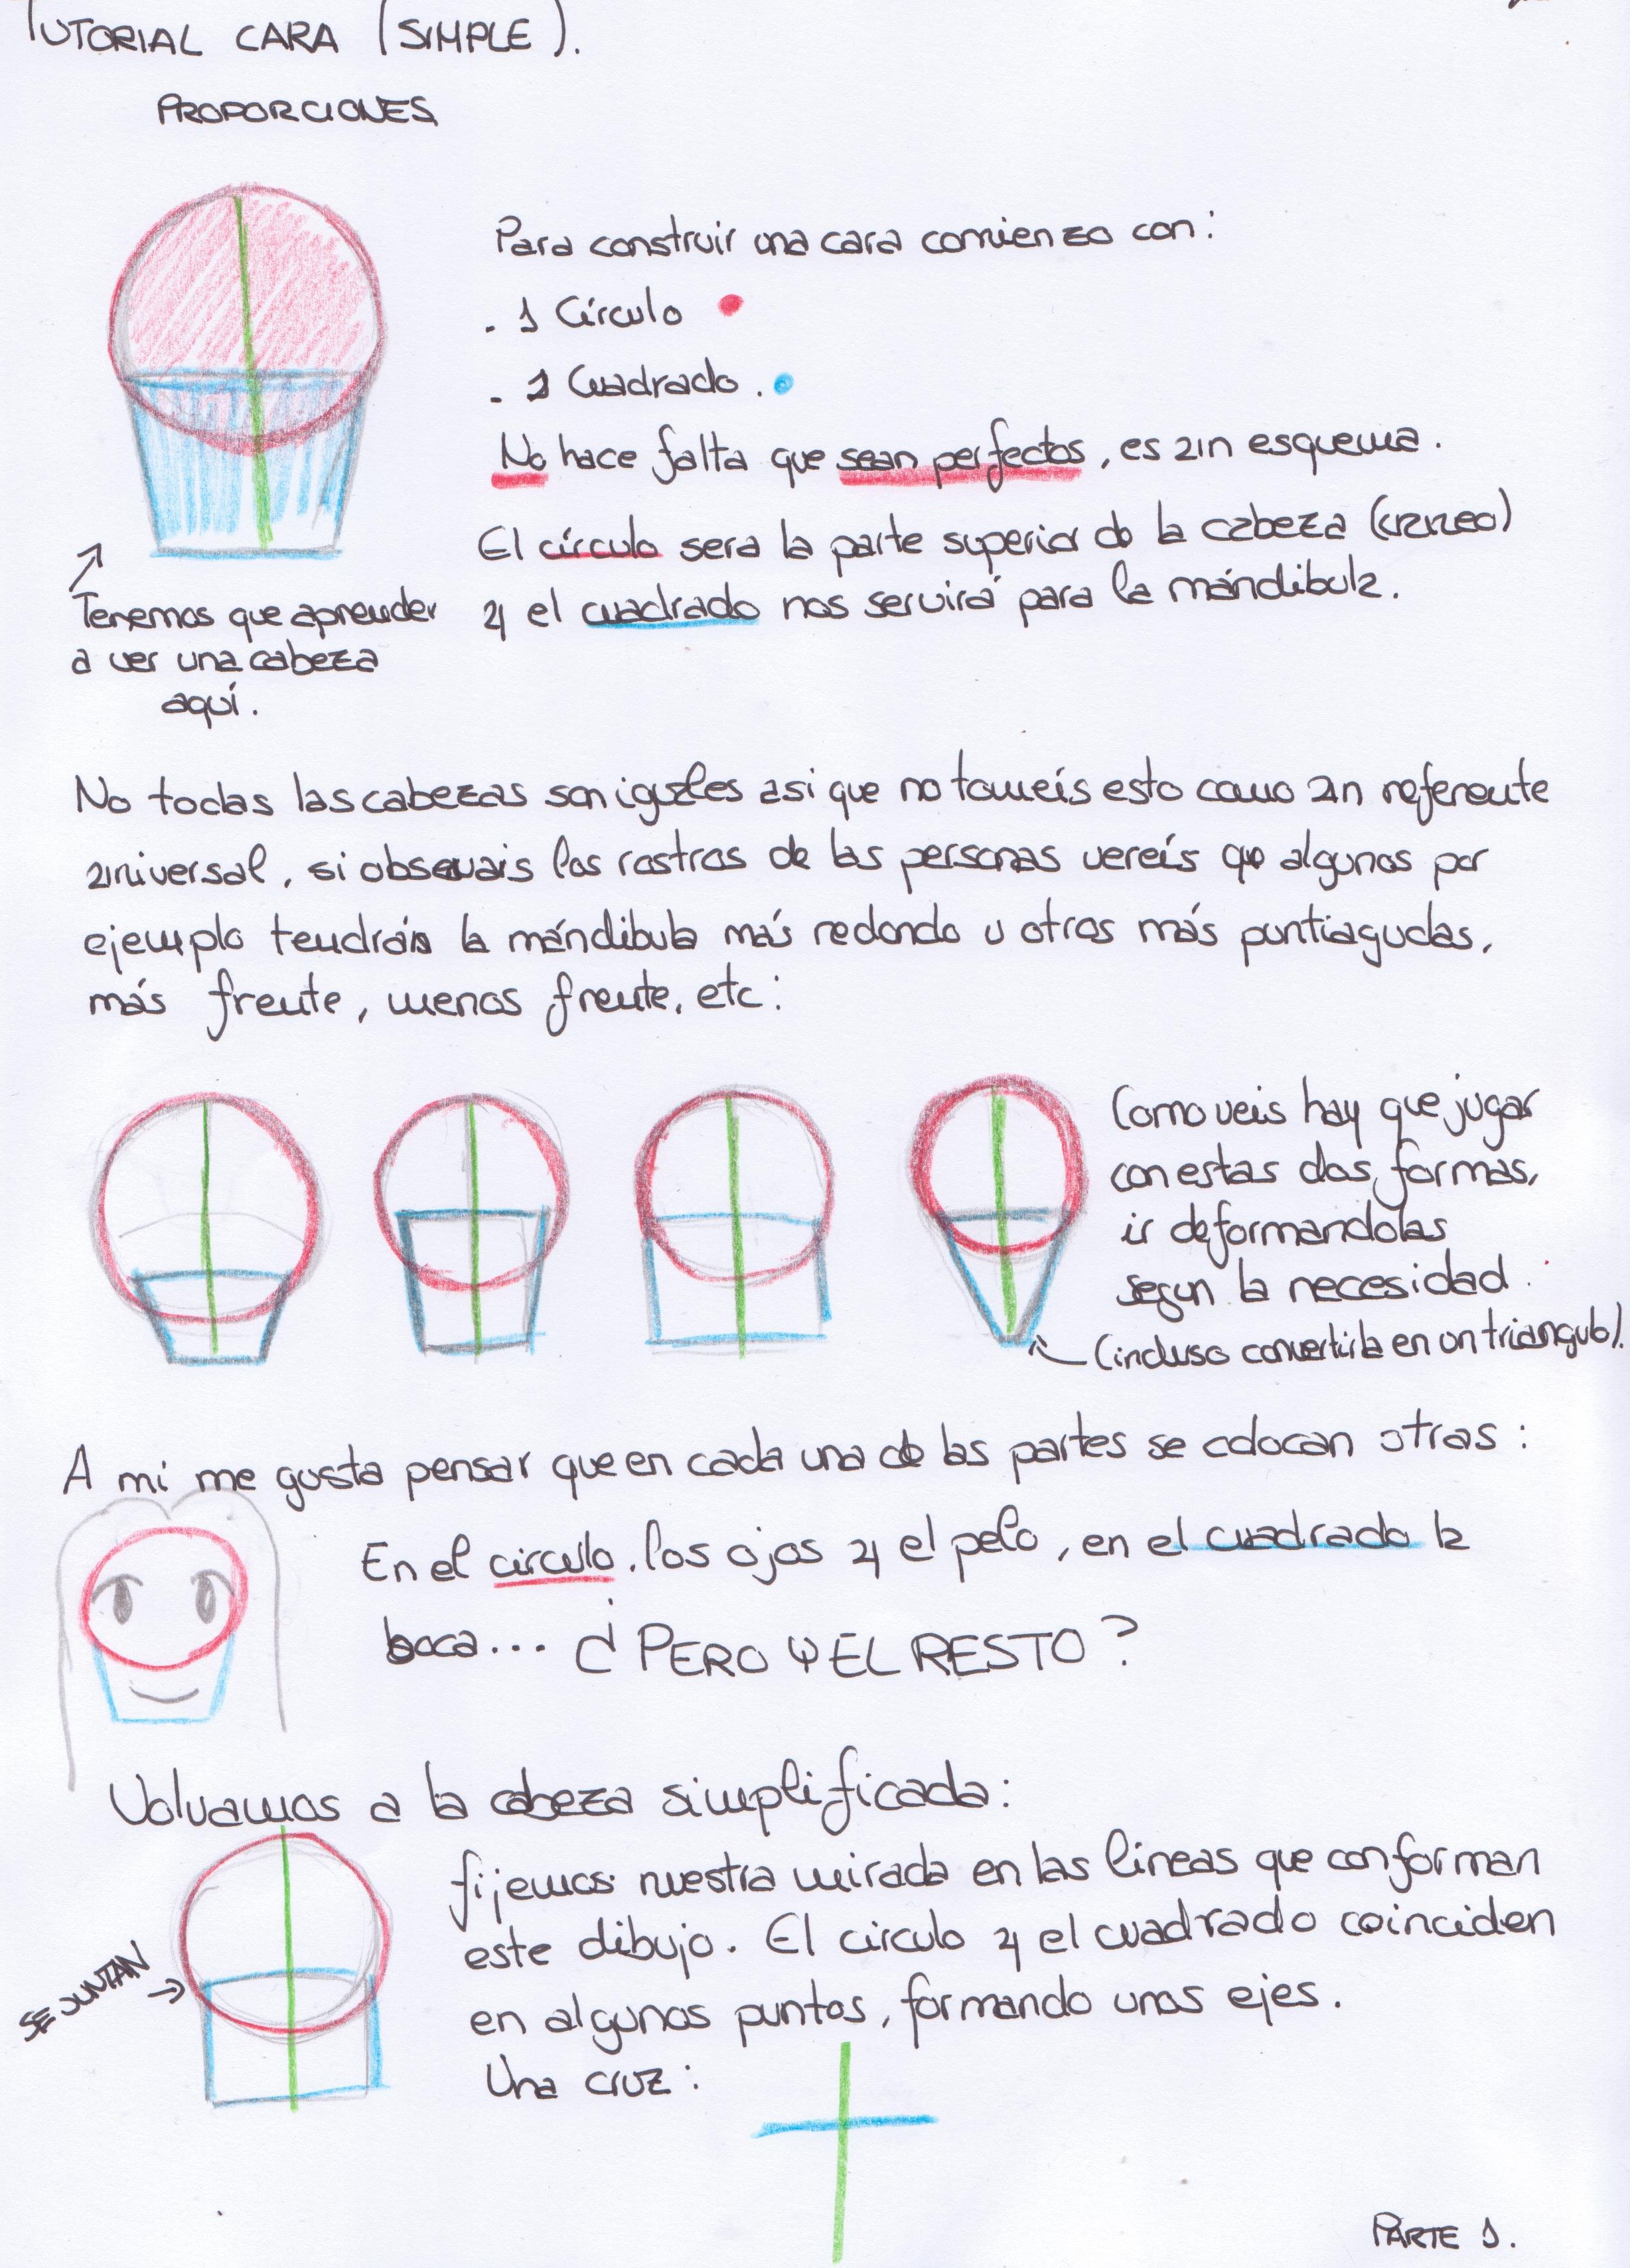 TUTORIAL CARA (SIMPLE).
PROPORCIONES
Para construir una cara comienzo con:
. 1 Círculo
. 1 Cuadrado.
No hace falta que sean perfectos, es un esquema.
El círculo sera la parte superior de la cabeza (cráneo)
y el cuadrado nos servirá para la mándibula.
Tenemos que aprender
a ver una cabeza
aquí.
No todas las cabezas son iguales asi que no tomeís esto como un referente
universal, si observais los rostros de las personas vereís que algunos por
ejemplo tendrán la mándibula más redonda u otros más puntiagudas,
más frente, menos frente, etc:
Como veis hay que jugar
con estas dos formas,
ir deformandolas
segun la necesidad.
(incluso convertirla en un triangulo).
A mi me gusta pensar que en cada una de las partes se colocan otras:
En el circulo, los ojos y el pelo, en el cuadrado la
boca... ¿PERO Y EL RESTO?
Volvamos a la cabeza simplificada:
fijemos nuestra mirada en las líneas que conforman
este dibujo. El circulo y el cuadrado coinciden
en algunos puntos, formando unos ejes.
Una cruz:
SE JUNTAN
PARTE 1.